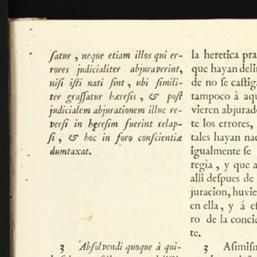 ſatur, neque etiam illos qui er-
rores judicialiter abjuraverint,
niſi iſti nati ſint, ubi ſimili-
ter graſſatur hæreſis, & poſt
judicialem abjurationem illuc re-
verſi in hereſim fuerint relap-
ſi, & hoc in foro conſcientiæ
dumtaxat.
3 Abſolvendi quoque à qui-
la heretica pra
que hayan deli
de no ſe caſtig
tampoco à aqu
vieren abjurad
te los errores,
tales hayan nac
igualmente ſe
regia, y que a
alli deſpues de
juracion, huvie
en ella, y á ef
ro de la concie
te.
3 Aſimiſm